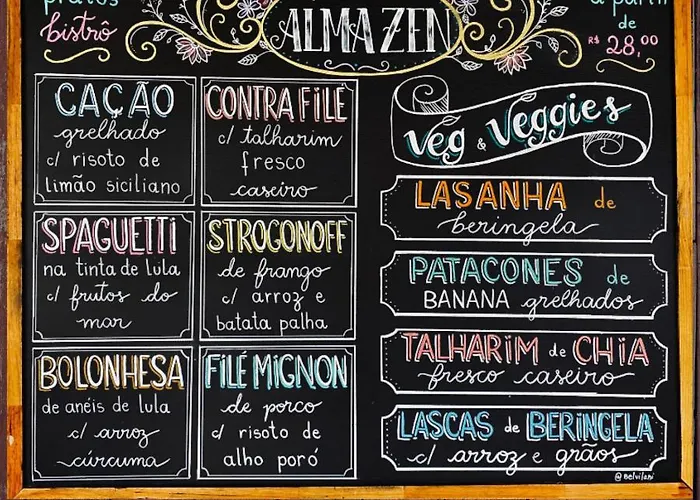 pratos
bistrô
ALMAZEN
a partir
de
R$ 28,00
CAÇÃO
grelhado
c/ risoto de
limão siciliano
CONTRA FILÉ
c/ talharim
fresco
caseiro
SPAGUETTI
na tinta de lula
c/ frutos do
mar
STROGONOFF
de frango
c/ arroz e
batata palha
BOLONHESA
de anéis de lula
c/ arroz
cúrcuma
FILÉ MIGNON
de porco
c/ risoto de
alho poró
Veg & Veggies
LASANHA de
beringela
PATACONES de
BANANA grelhados
TALHARIM de CHIA
fresco caseiro
LASCAS de BERINGELA
c/ arroz e grãos